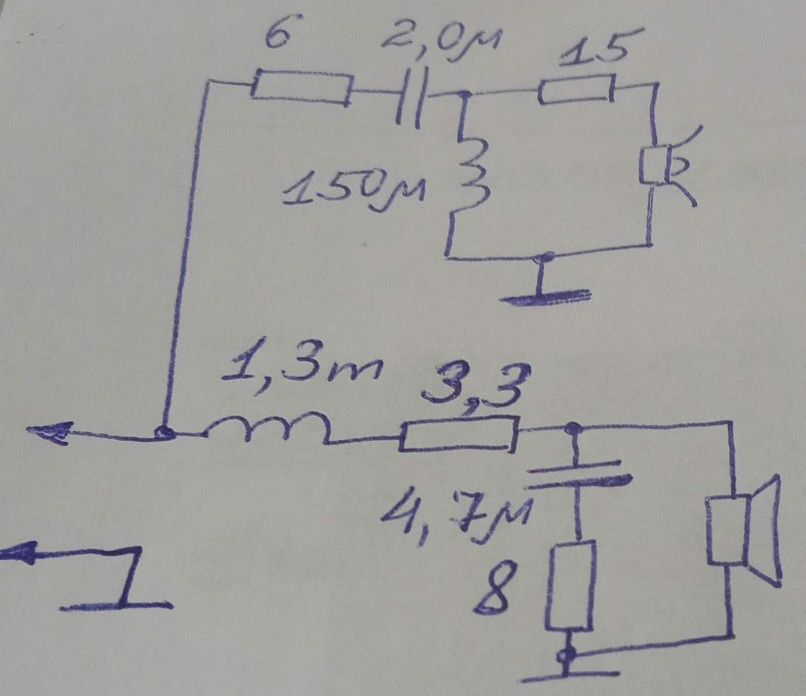 6 2,0м 15
150м
1,3m 3,3
4,7м
8